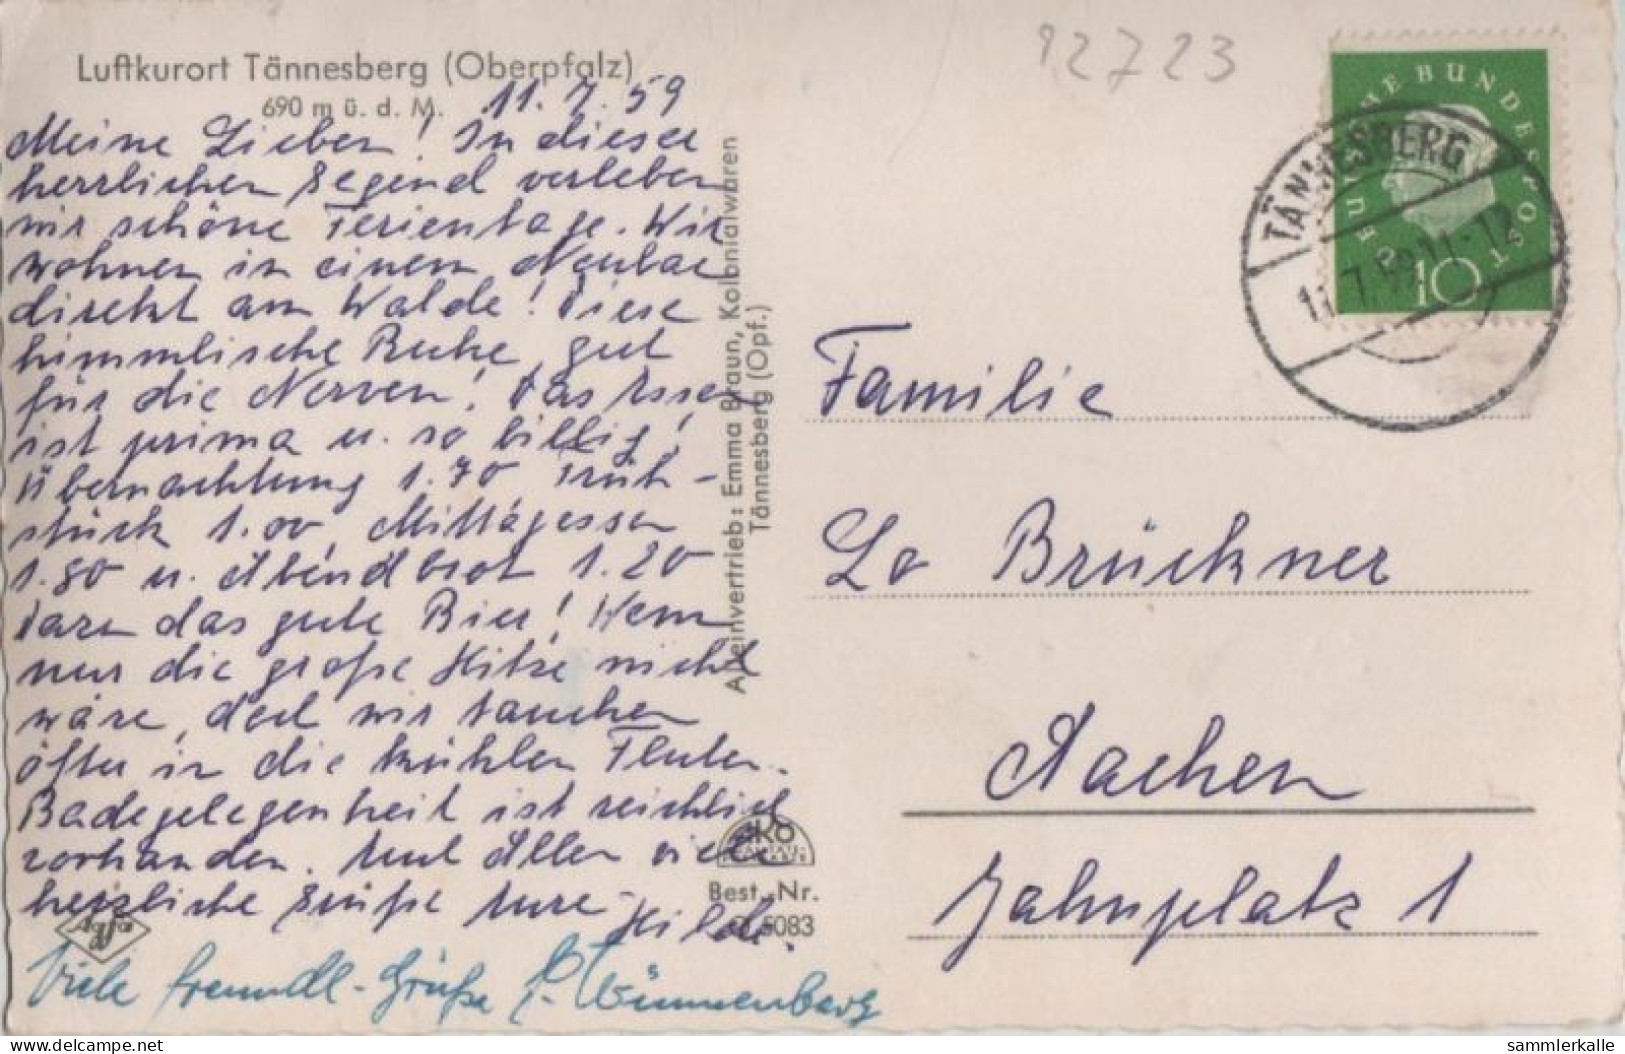 Luftkurort Tännesberg (Oberpfalz)
690 m ü. d. M.
11. 7. 59
Meine Lieben! In dieser
herrlichen Gegend verleben
wir schöne Ferientage. Wir
wohnen in einem Neubau
direkt am Walde! Diese
himmlische Ruhe, gut
für die Nerven! Das Essen
ist prima u. so billig!
Übernachtung 1.70 Früh-
stück 1.00, Mittagessen
1.80 u. Abendbrot 1.20
dazu das gute Bier! Wenn
nur die große Hitze nicht
wäre, doch wir tauchen
öfter in die kühlen Fluten.
Badegelegenheit ist reichlich
vorhanden. Euch Allen viele
herzliche Grüße Eure Hilde.
Viele freundl. Grüße
Alleinvertrieb: Emma Braun, Kolonialwaren
Tännesberg (Opf.)
Agfa
Best.-Nr.
5083
92723
DEUTSCHE BUNDESPOST
10
TÄNNESBERG
7.59.11-12
Familie
Lo Brückner
Aachen
Jahnplatz 1
DELCAMPE.NET
sammlerkalle